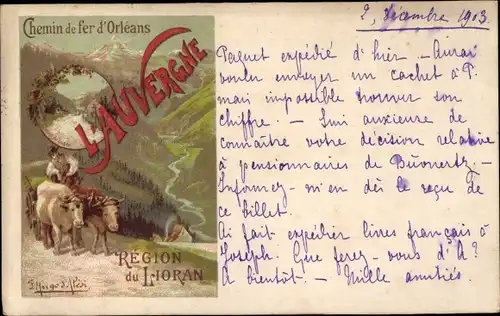 Chemin de fer d'Orléans
L'AUVERGNE
RÉGION
du LIORAN
F. Hugo d'Alési
2, décembre 1903
Paquet expédié d'hier. – Aurai
voulu envoyer un cachet à P.
mais impossible trouver son
chiffre. – Suis anxieuse de
connaître votre décision relative
à pensionnaires de
Informez-m'en dès le reçu de
ce billet.
Ai fait expédier livres français à
Joseph. Que ferez-vous d'A?
A bientôt. – Mille amitiés.